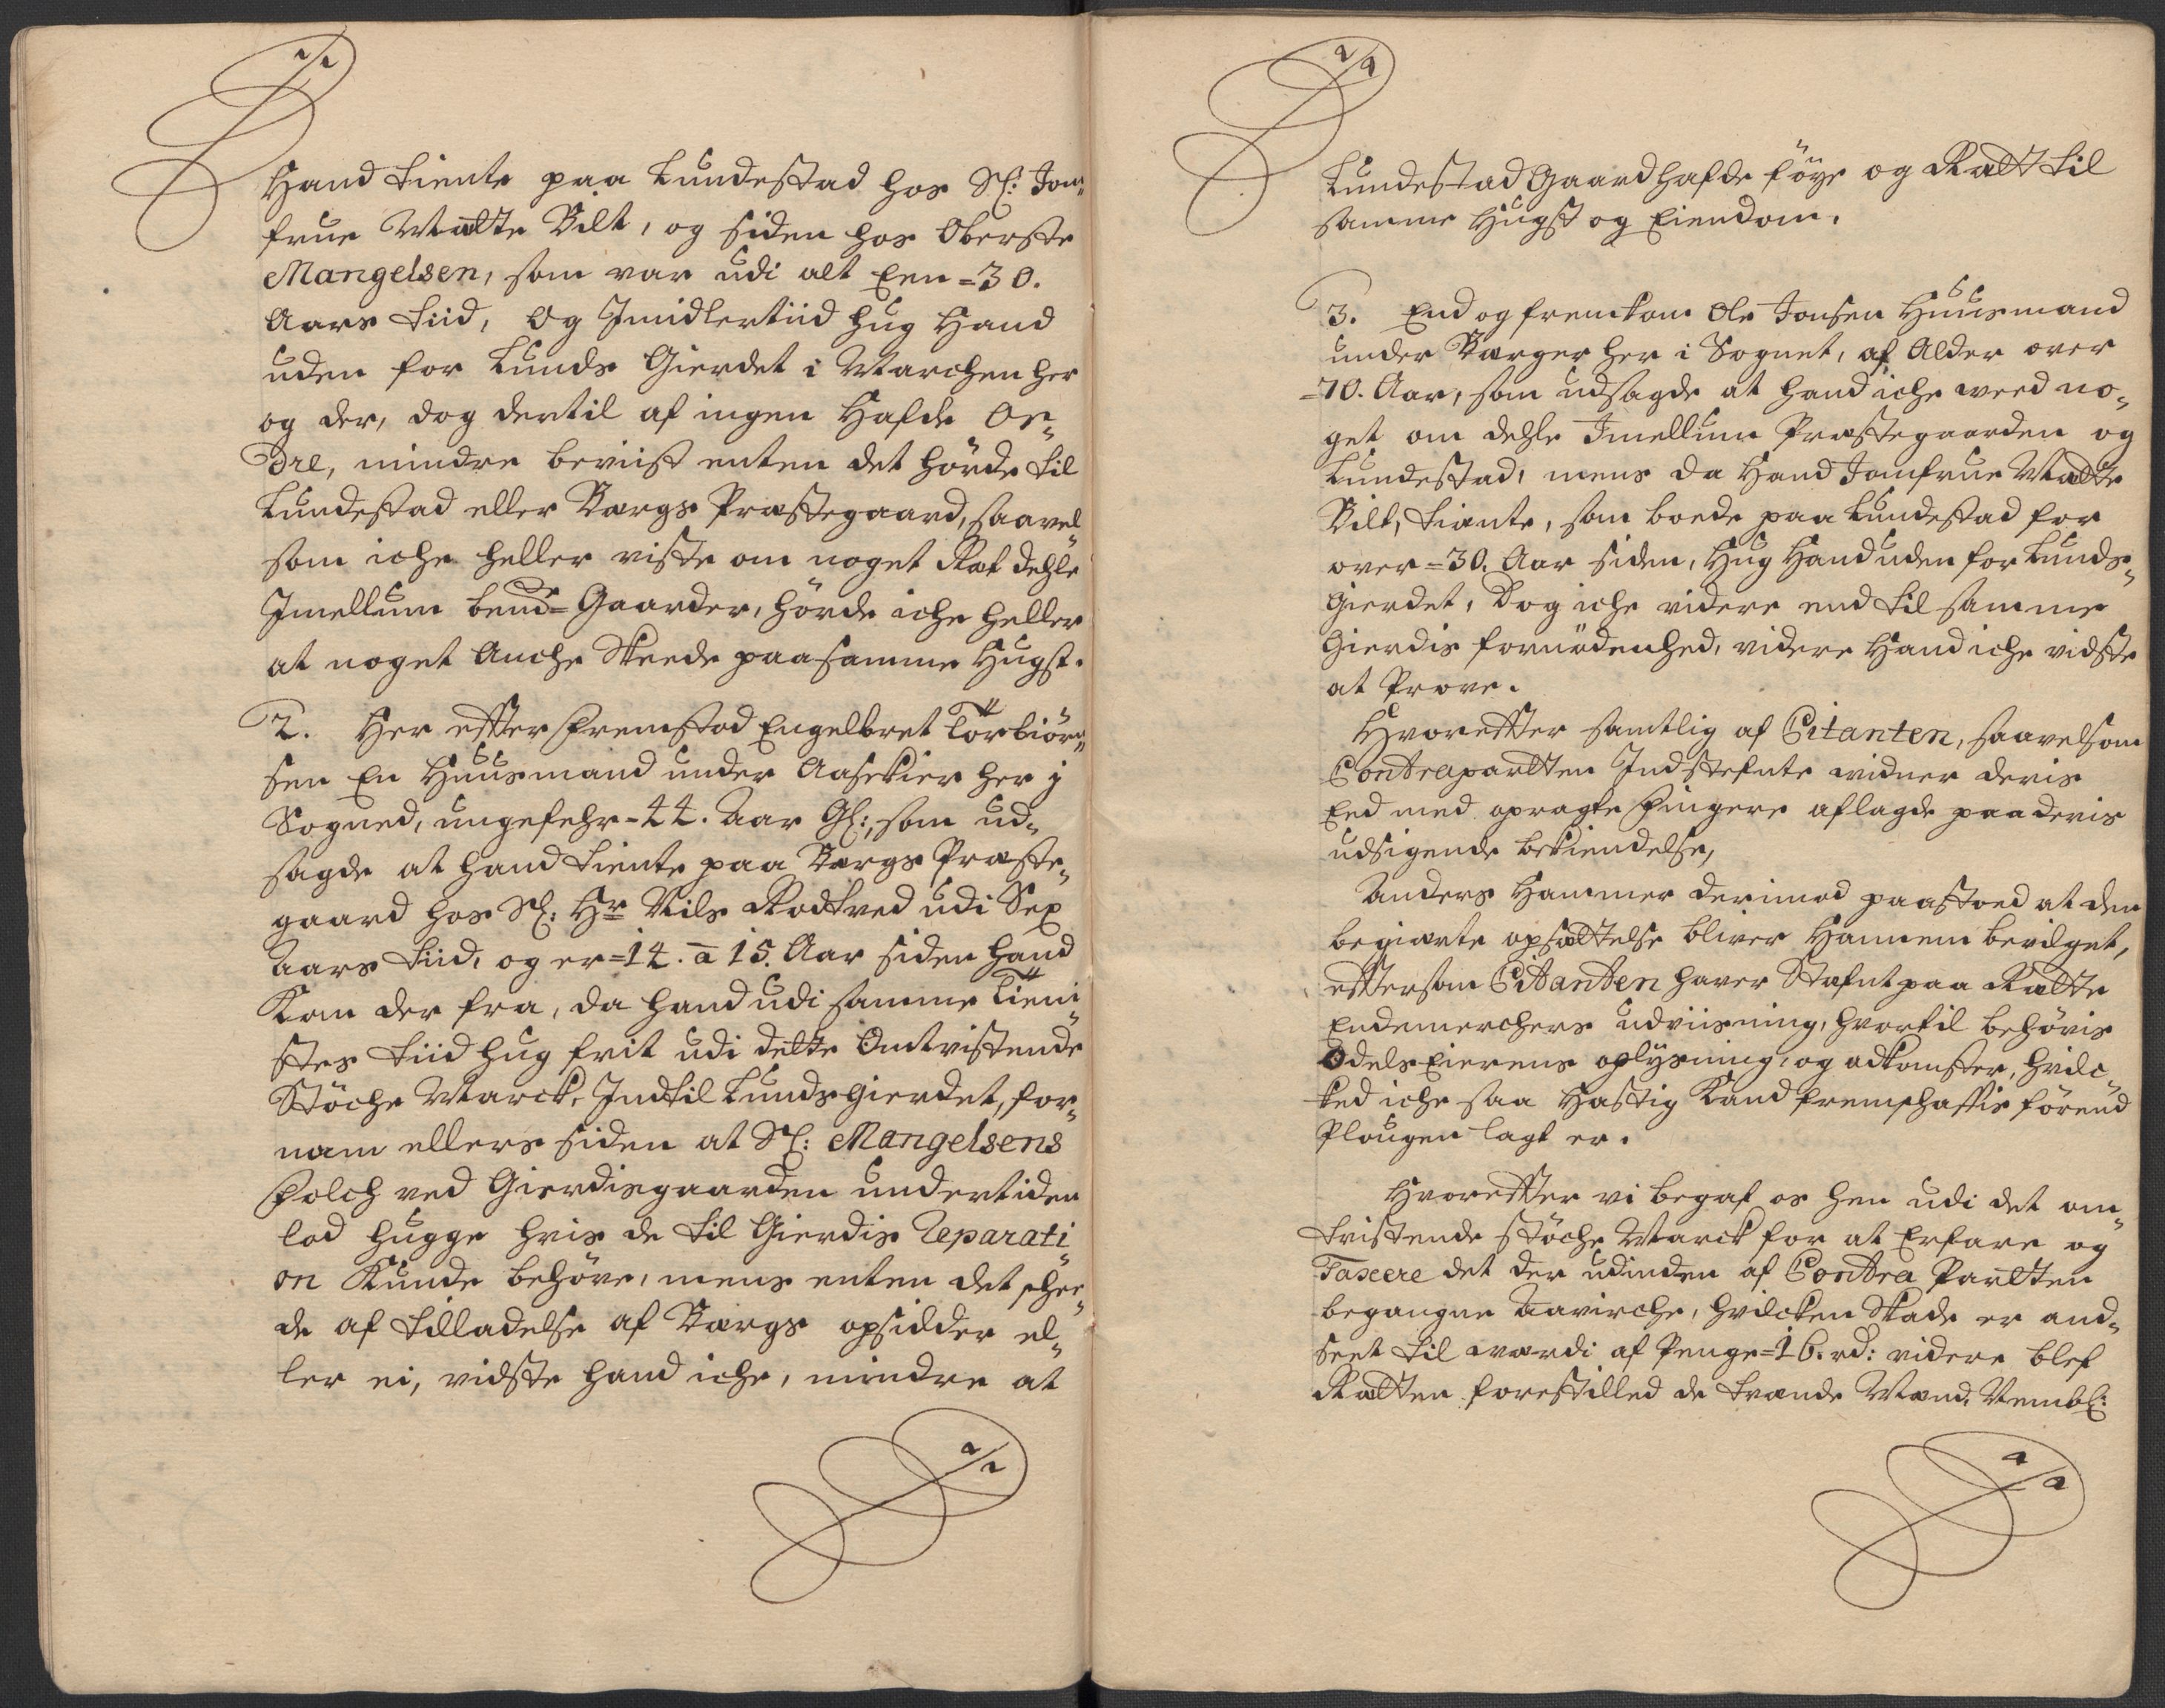 Hand tiente paa Lundestad hos Sl: Jom„
frue Mætte Bilt, og siden hos Oberste
Mangelsen, som var udi alt Een =30.
Aars tiid, Og Jmidlertiid hug Hand
uden for Lunds Gierdet i Marchen her
og der, dog dertil af ingen Hafde Or„
dre, mindre beviist enten det hörde til
Lundestad eller Bergs Præstegaard, saavel„
som iche heller viste om noget Ræt dehle
Jmellum bemte= Gaarder, hörde iche heller
at noget Anche Skeede paa samme Hugst.
2. Her effter fremstod Engelbret Törbiörn„
sen En Huusmand under Aasekier her j
Sogned, ungefehr =44. Aar Gl:, som ud„
sagde at hand tiente paa Bergs Præste„
gaard hos Sl: Hr Nils Rodtved udi Sex
Aars tiid, og er =14. a 15. Aar siden hand
Kom der fra, da hand udi samme tieni„
stes tiid hug frit udi dette Omtvistende
Stöche Marck, Indtil Lunds gierdet, for„
nam ellers siden at Sl: Mangelsens
Folch ved Gierdisgaarden undertiden
lod hugge hvis de til Gierdis Reparati„
on Kunde behöve, mens enten det schee„
de af tilladelse af Bergs opsidder el„
ler ei, vidste hand iche, mindre at
Lundestad Gaard hafde föye og Rætt til
samme Hugst og Eiendom.
3. End og fremkom Ole Jonsen Huusmand
under Berger her i Sognet, af Alder over
=70. Aar, som udsagde at hand iche weed no„
get om dehle Jmellum Præstegaarden og
Lundestad, mens da Hand Jomfrue Mætte
Bilt, tiente, som boede paa Lundestad for
over =30. Aar siden, Hug Hand uden for Lunds„
Gierdet, Dog iche videre end til samme
Gierdis fornödenhed, videre Hand iche vidste
at Prove.
Hvoreffter samtlig af Citanten, saavelsom
Contrapartten Indstefnte widner deris
Eed med opragte Fingere aflagde paa deris
udsigende bekiendelse,
Anders Hammer derimod paastoed at den
begierte opsættelse bliver Hannem bevilget,
effter som Citanten haver Stefnt paa Rætte
Endemerchers udviisning, hvortil behövis
Odels Eierens oplysning, og adkomster, hvilc„
ked iche saa Hastig Kand fremschaffis förend
Plougen lagt er.
Hvoreffter vi begaf os hen udi det om„
tvistende stöche Marck for at Erfare og
Taxere det der udinden af Contra Partten
begangne Aavirche, hvilcken Skade er and„
seet til werdi af Penge =16. rd: videre blef
Rætten forestilled de tvende Mænd, Nembl: